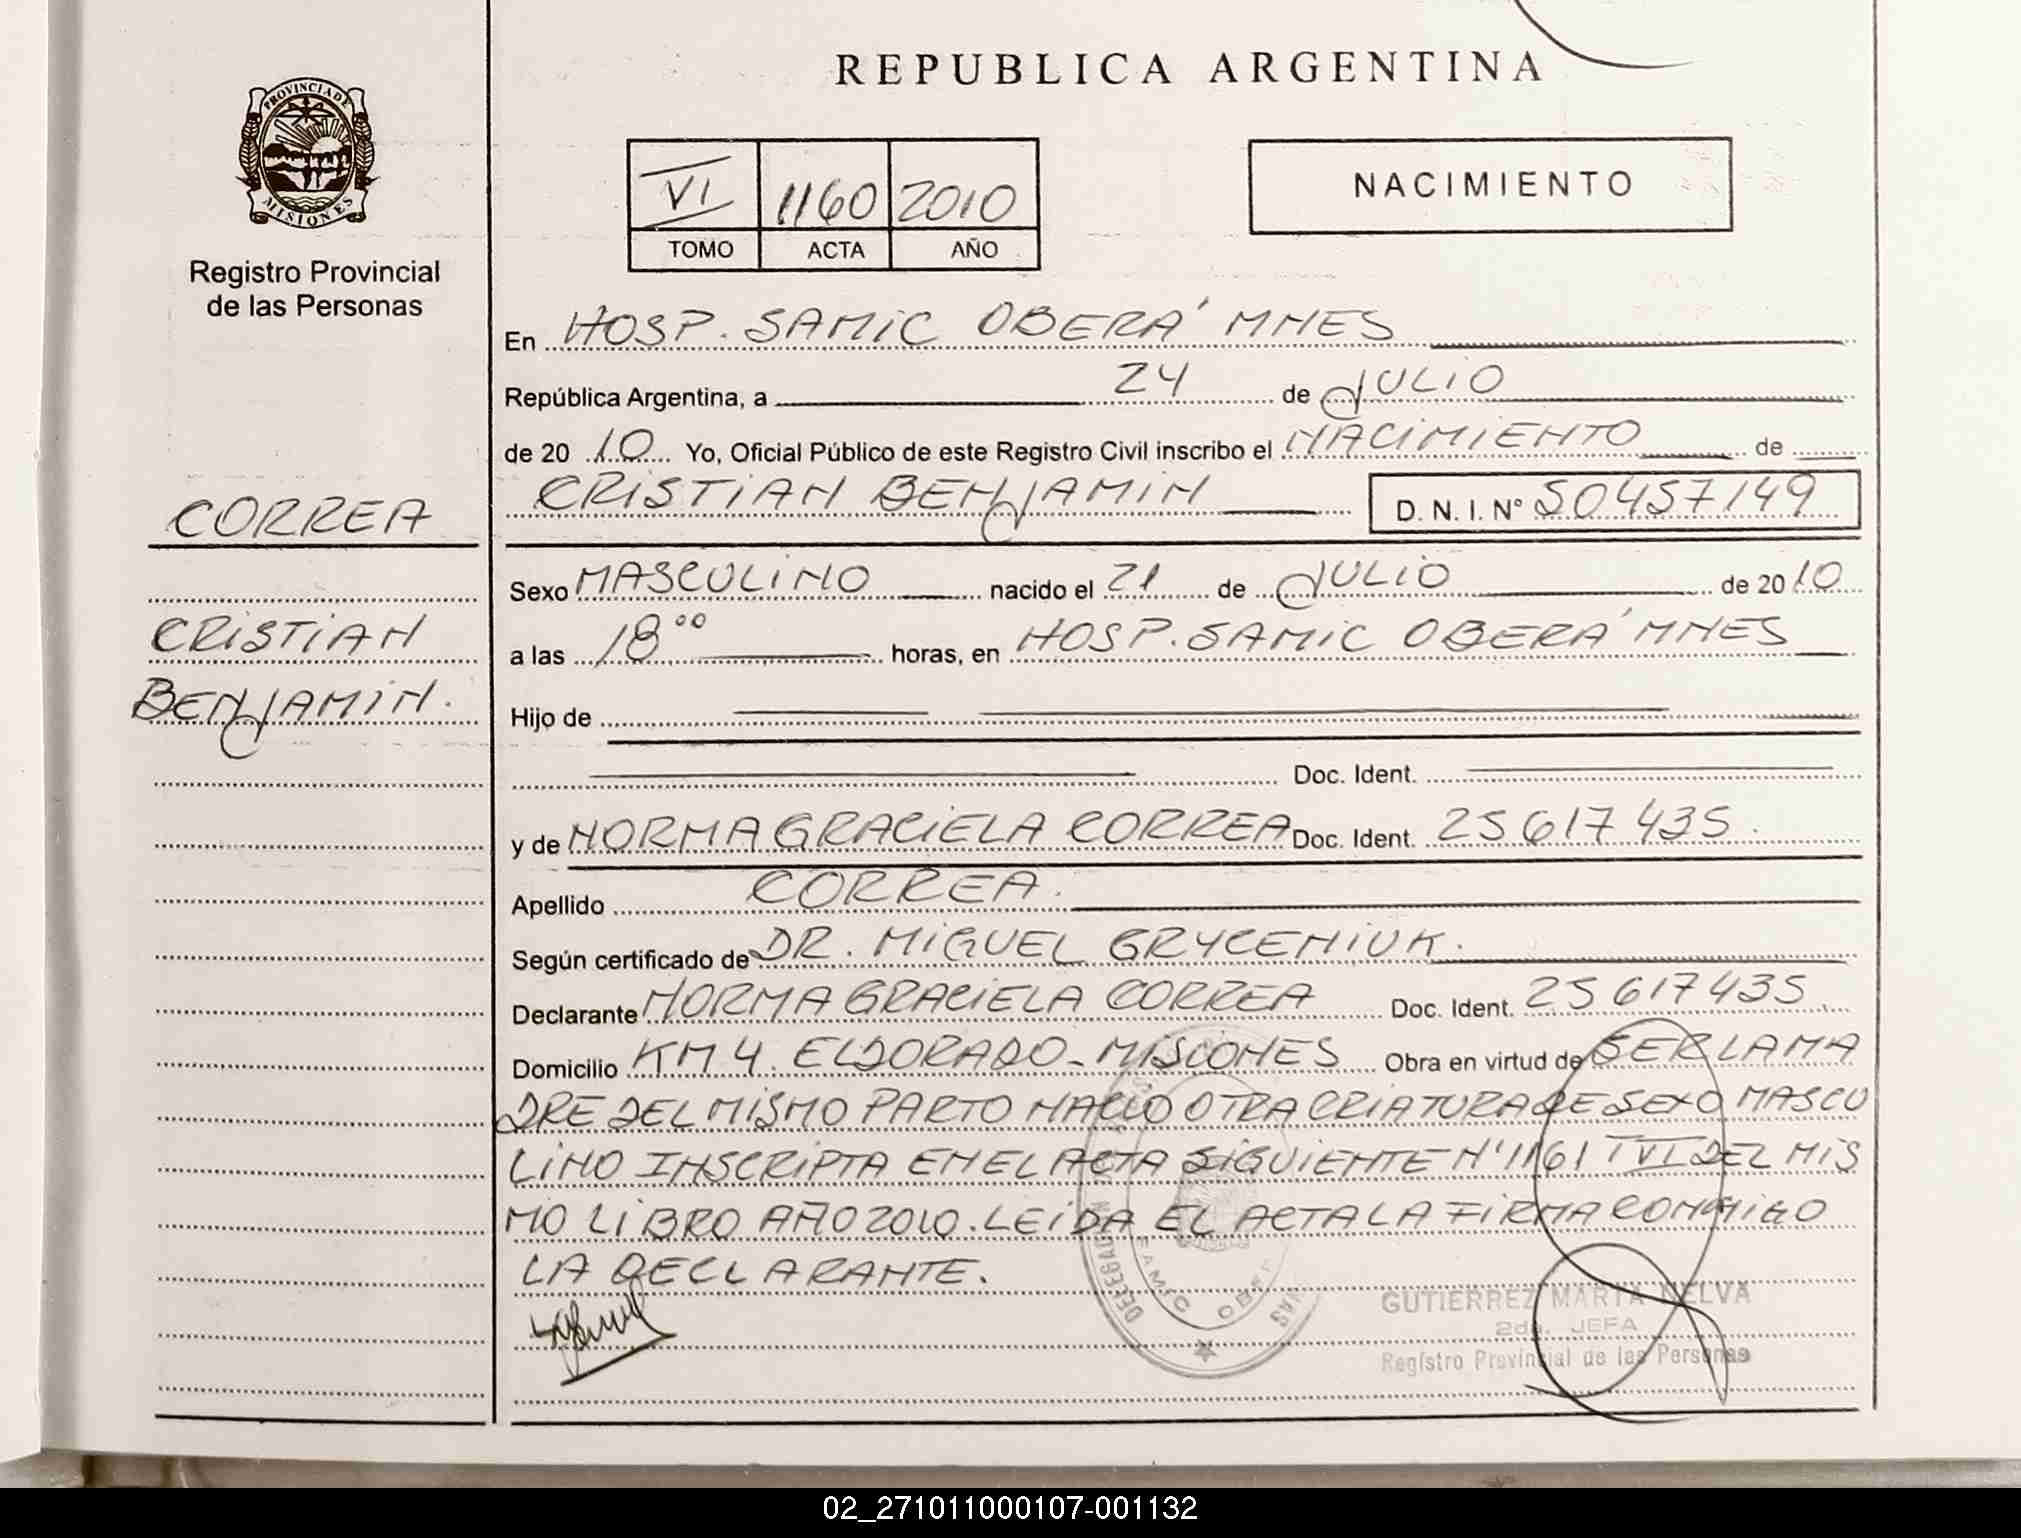 REPUBLICA ARGENTINA
PROVINCIA DE
MISIONES
Registro Provincial
de las Personas
VI 1160 2010
TOMO ACTA AÑO
NACIMIENTO
En HOSP. SAMIC OBERÁ MNES
República Argentina, a 24 de JULIO
de 2010 Yo, Oficial Público de este Registro Civil inscribo el NACIMIENTO de
CRISTIAN BENJAMIN D. N. I. Nº 50457149
CORREA
CRISTIAN
BENJAMIN.
Sexo MASCULINO nacido el 21 de JULIO de 2010
a las 18⁰⁰ horas, en HOSP. SAMIC OBERÁ MNES
Hijo de
Doc. Ident.
y de NORMA GRACIELA CORREA Doc. Ident. 25617435.
Apellido CORREA.
Según certificado de DR. MIGUEL GRYCENIUK.
Declarante NORMA GRACIELA CORREA Doc. Ident. 25617435.
Domicilio KM 4. ELDORADO - MISIONES Obra en virtud de SER LA MA
DRE DEL MISMO PARTO NACIO OTRA CRIATURA DE SEXO MASCU
LINO INSCRIPTA EN EL ACTA SIGUIENTE Nº 1161 T VI DEL MIS
MO LIBRO AÑO 2010. LEÍDA EL ACTA LA FIRMA CONMIGO
LA DECLARANTE.
GUTIERREZ MARTA NELVA
2da. JEFA
Registro Provincial de las Personas
DELEGACION
02_271011000107-001132